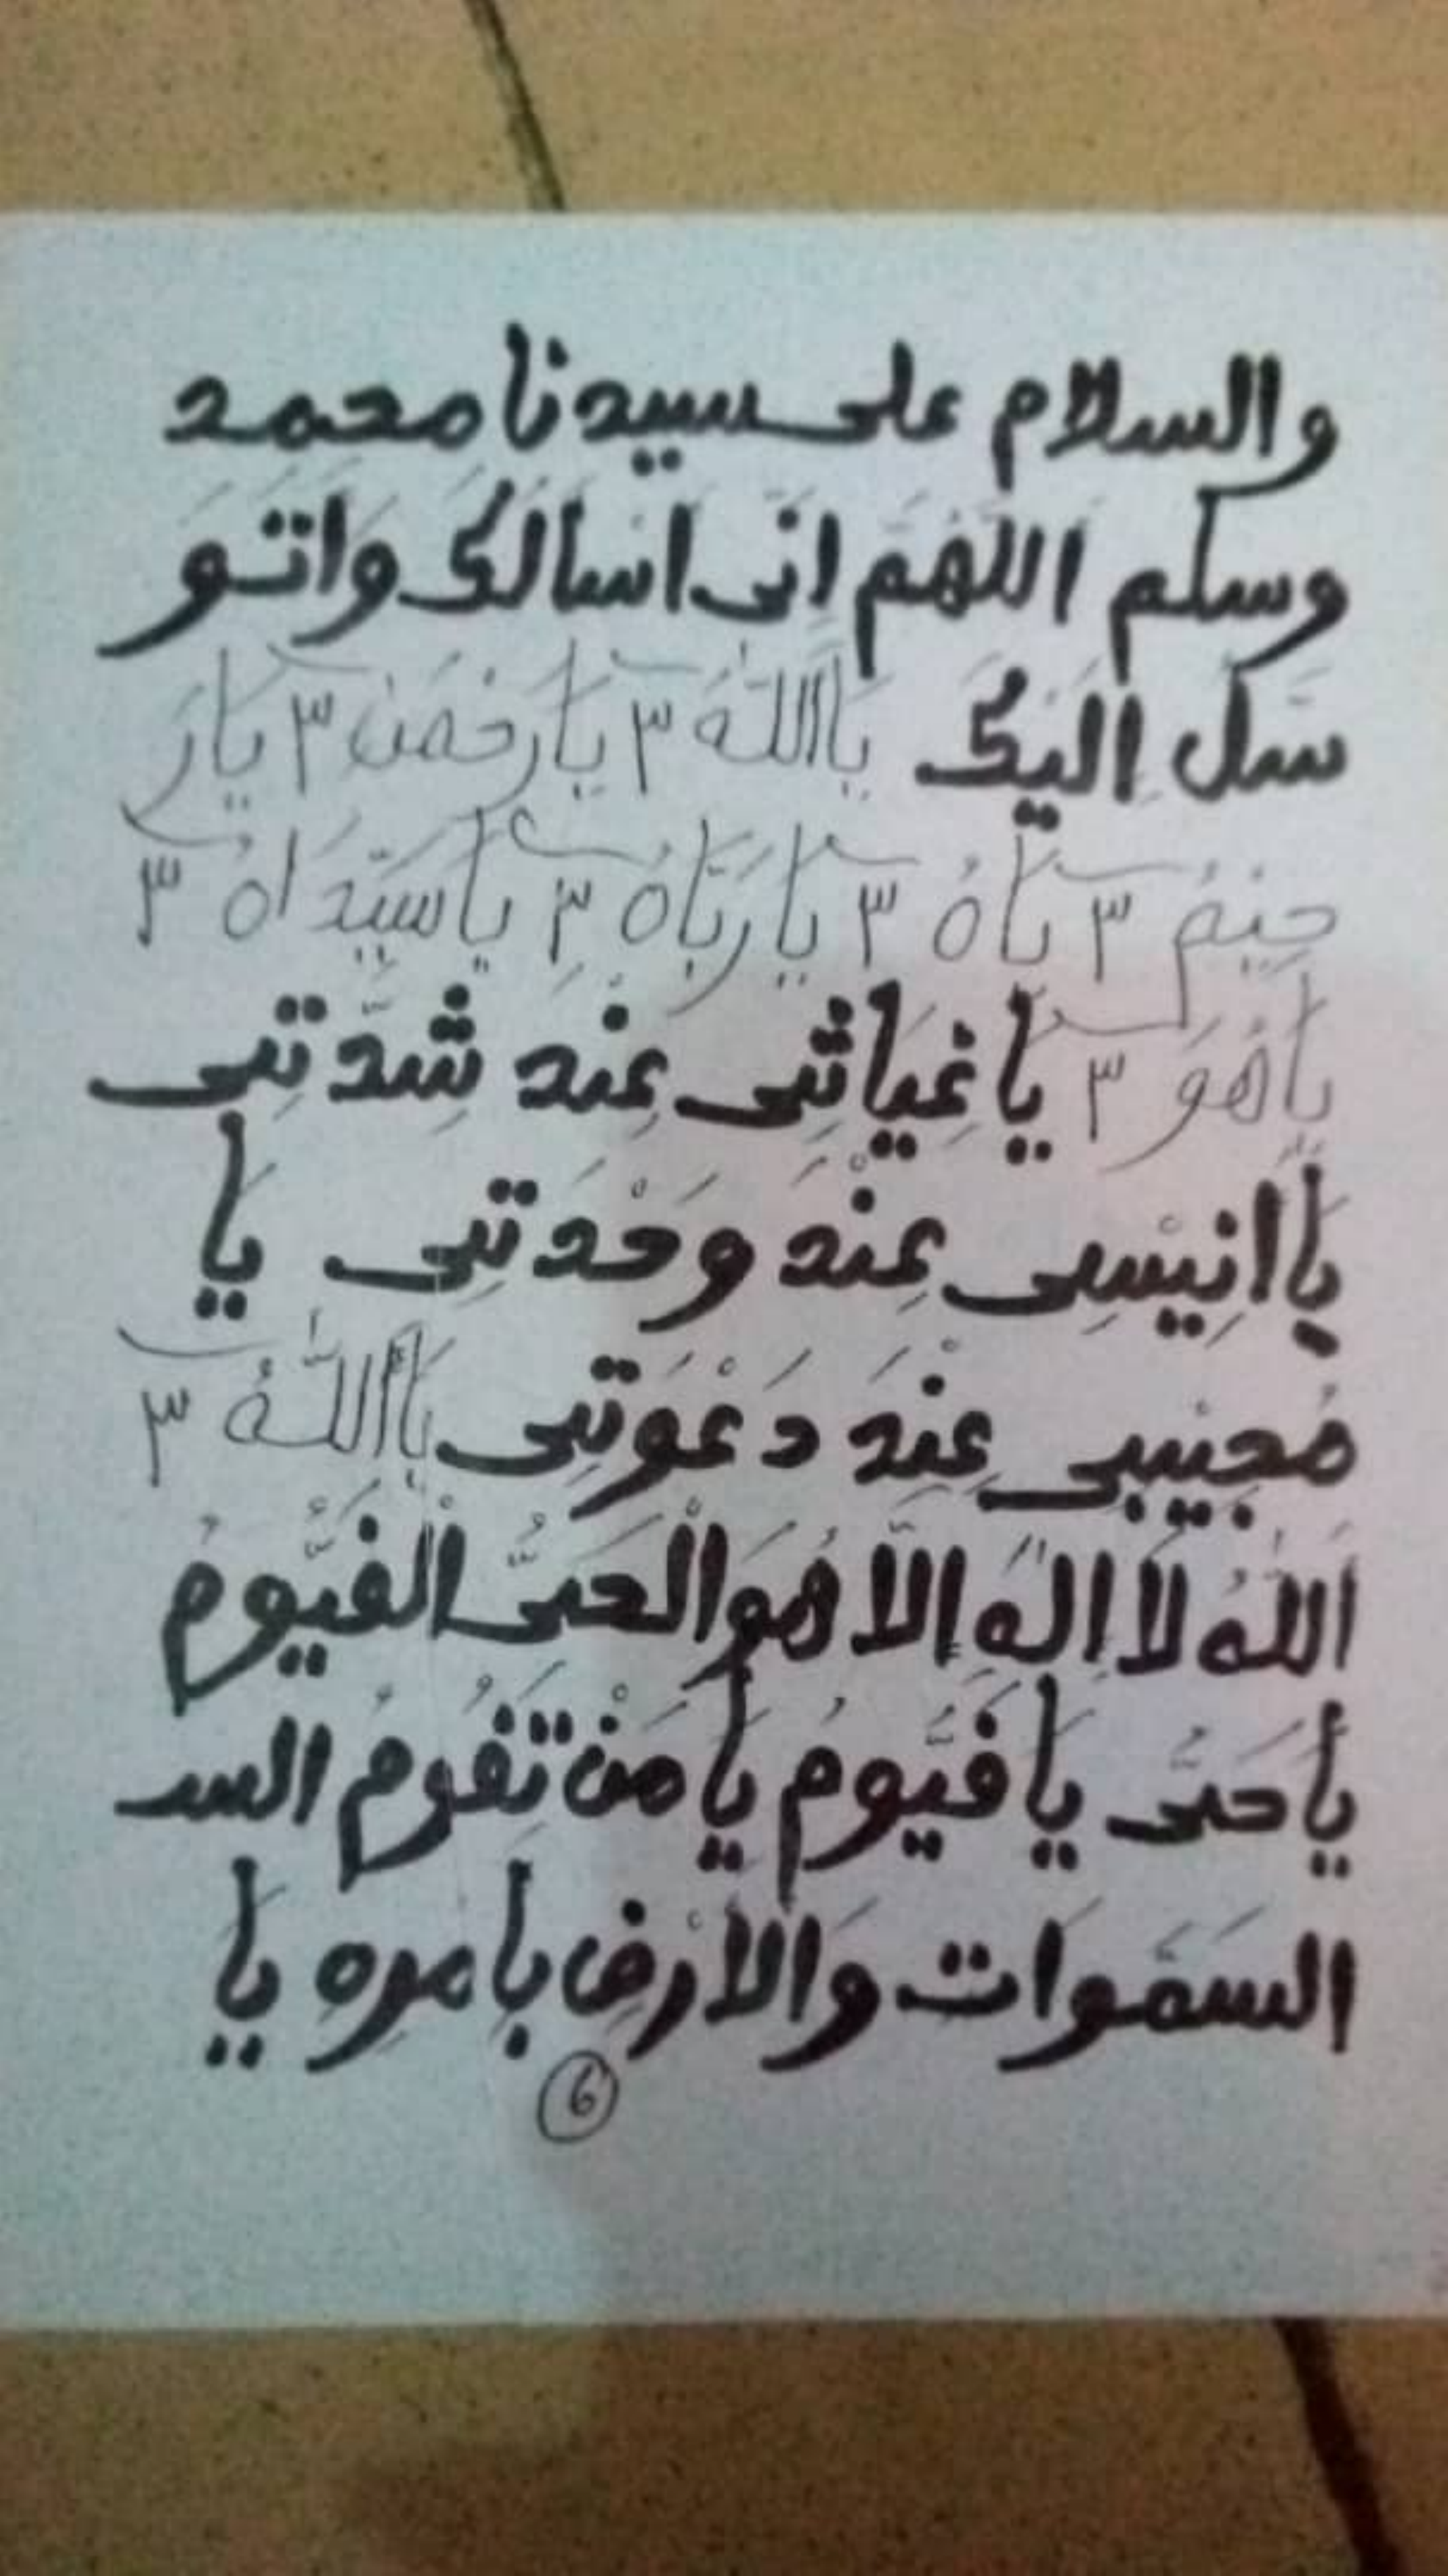 والسلام على سيدنا محمد
وسلم اللهم اني اسالك واتو
سل اليك يَااَللّٰهُ ٣ يَارَحْمَنُ ٣ يَارَ
حِيْمُ ٣ يَاهُ ٣ يَارَبَّاهُ ٣ يَاسَيِّدَاهُ ٣
يَاهُوَ ٣ يَا غِيَاثِى عِنْد شِدَّتِى
يَا اَنِيْسِى عِنْدَ وَحْدَتِى يَا
مُجِيْبِى عِنْدَ دَعْوَتِى يَااَللّٰهُ ٣
اَللّٰهُ لَا اِلٰهَ اِلَّا هُوَ الْحَىُّ الْقَيُّومُ
يَا حَىُّ يَا قَيُّومُ يَا مَنْ تَقُومُ السـ
السَمَوَات وَالْاَرْض بِاَمرِهِ يَا
6